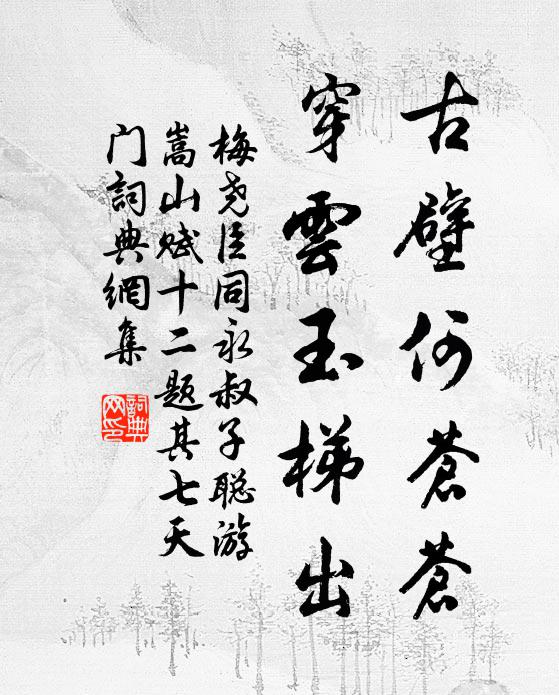 古壁何蒼蒼
穿雲玉梯出
梅尧臣同永叔子聪游
嵩山赋十二题其七天
门詞典網集
詞典
网印